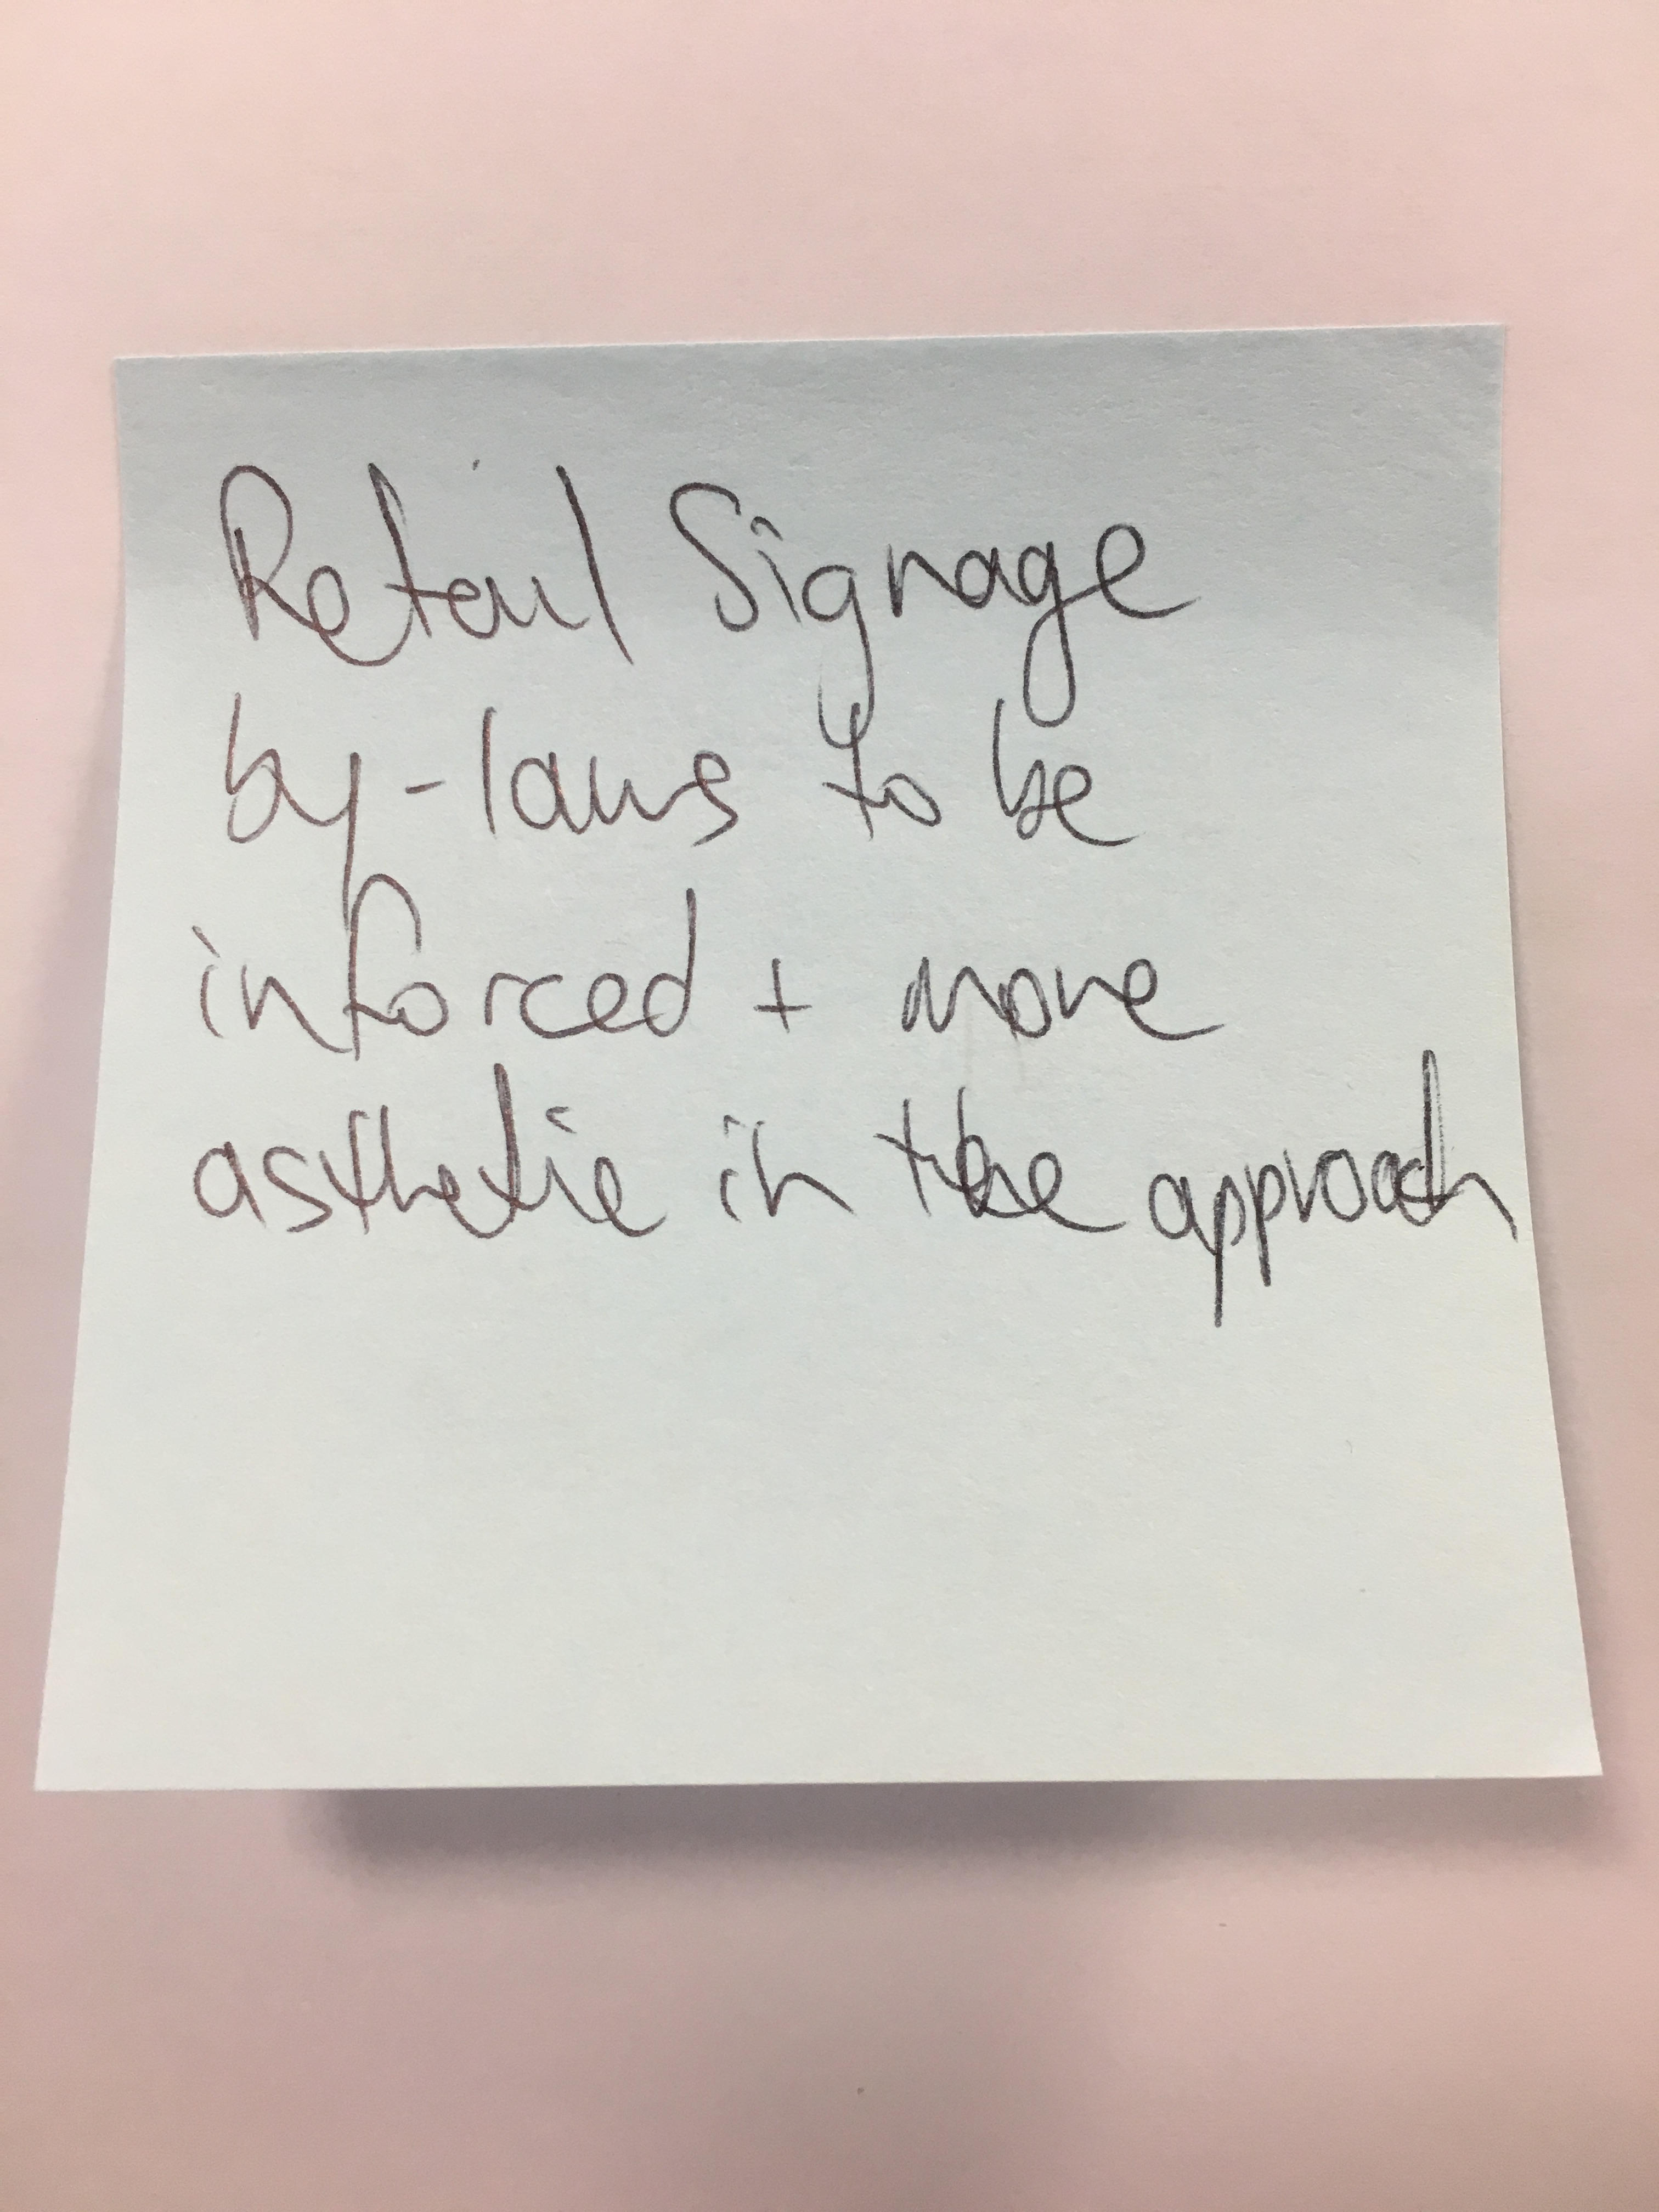 Retail Signage
by-laws to be
inforced + more
asthetic in the approach